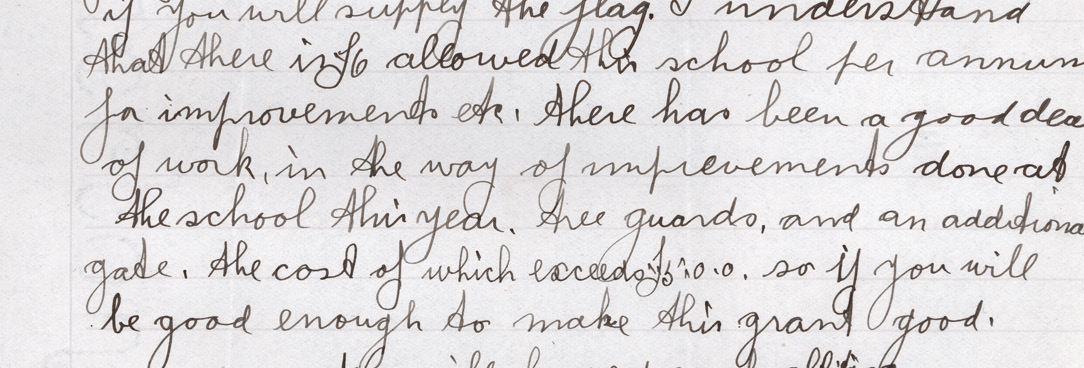 if you will supply the flag. I understand
that there is £6 allowed this school per annum
for improvements etc. there has been a good dea
of work, in the way of imprevements done at
the school this year. tree guards, and an additiona
gate. the cost of which exceeds £5.0.0. so if you will
be good enough to make this grant good.